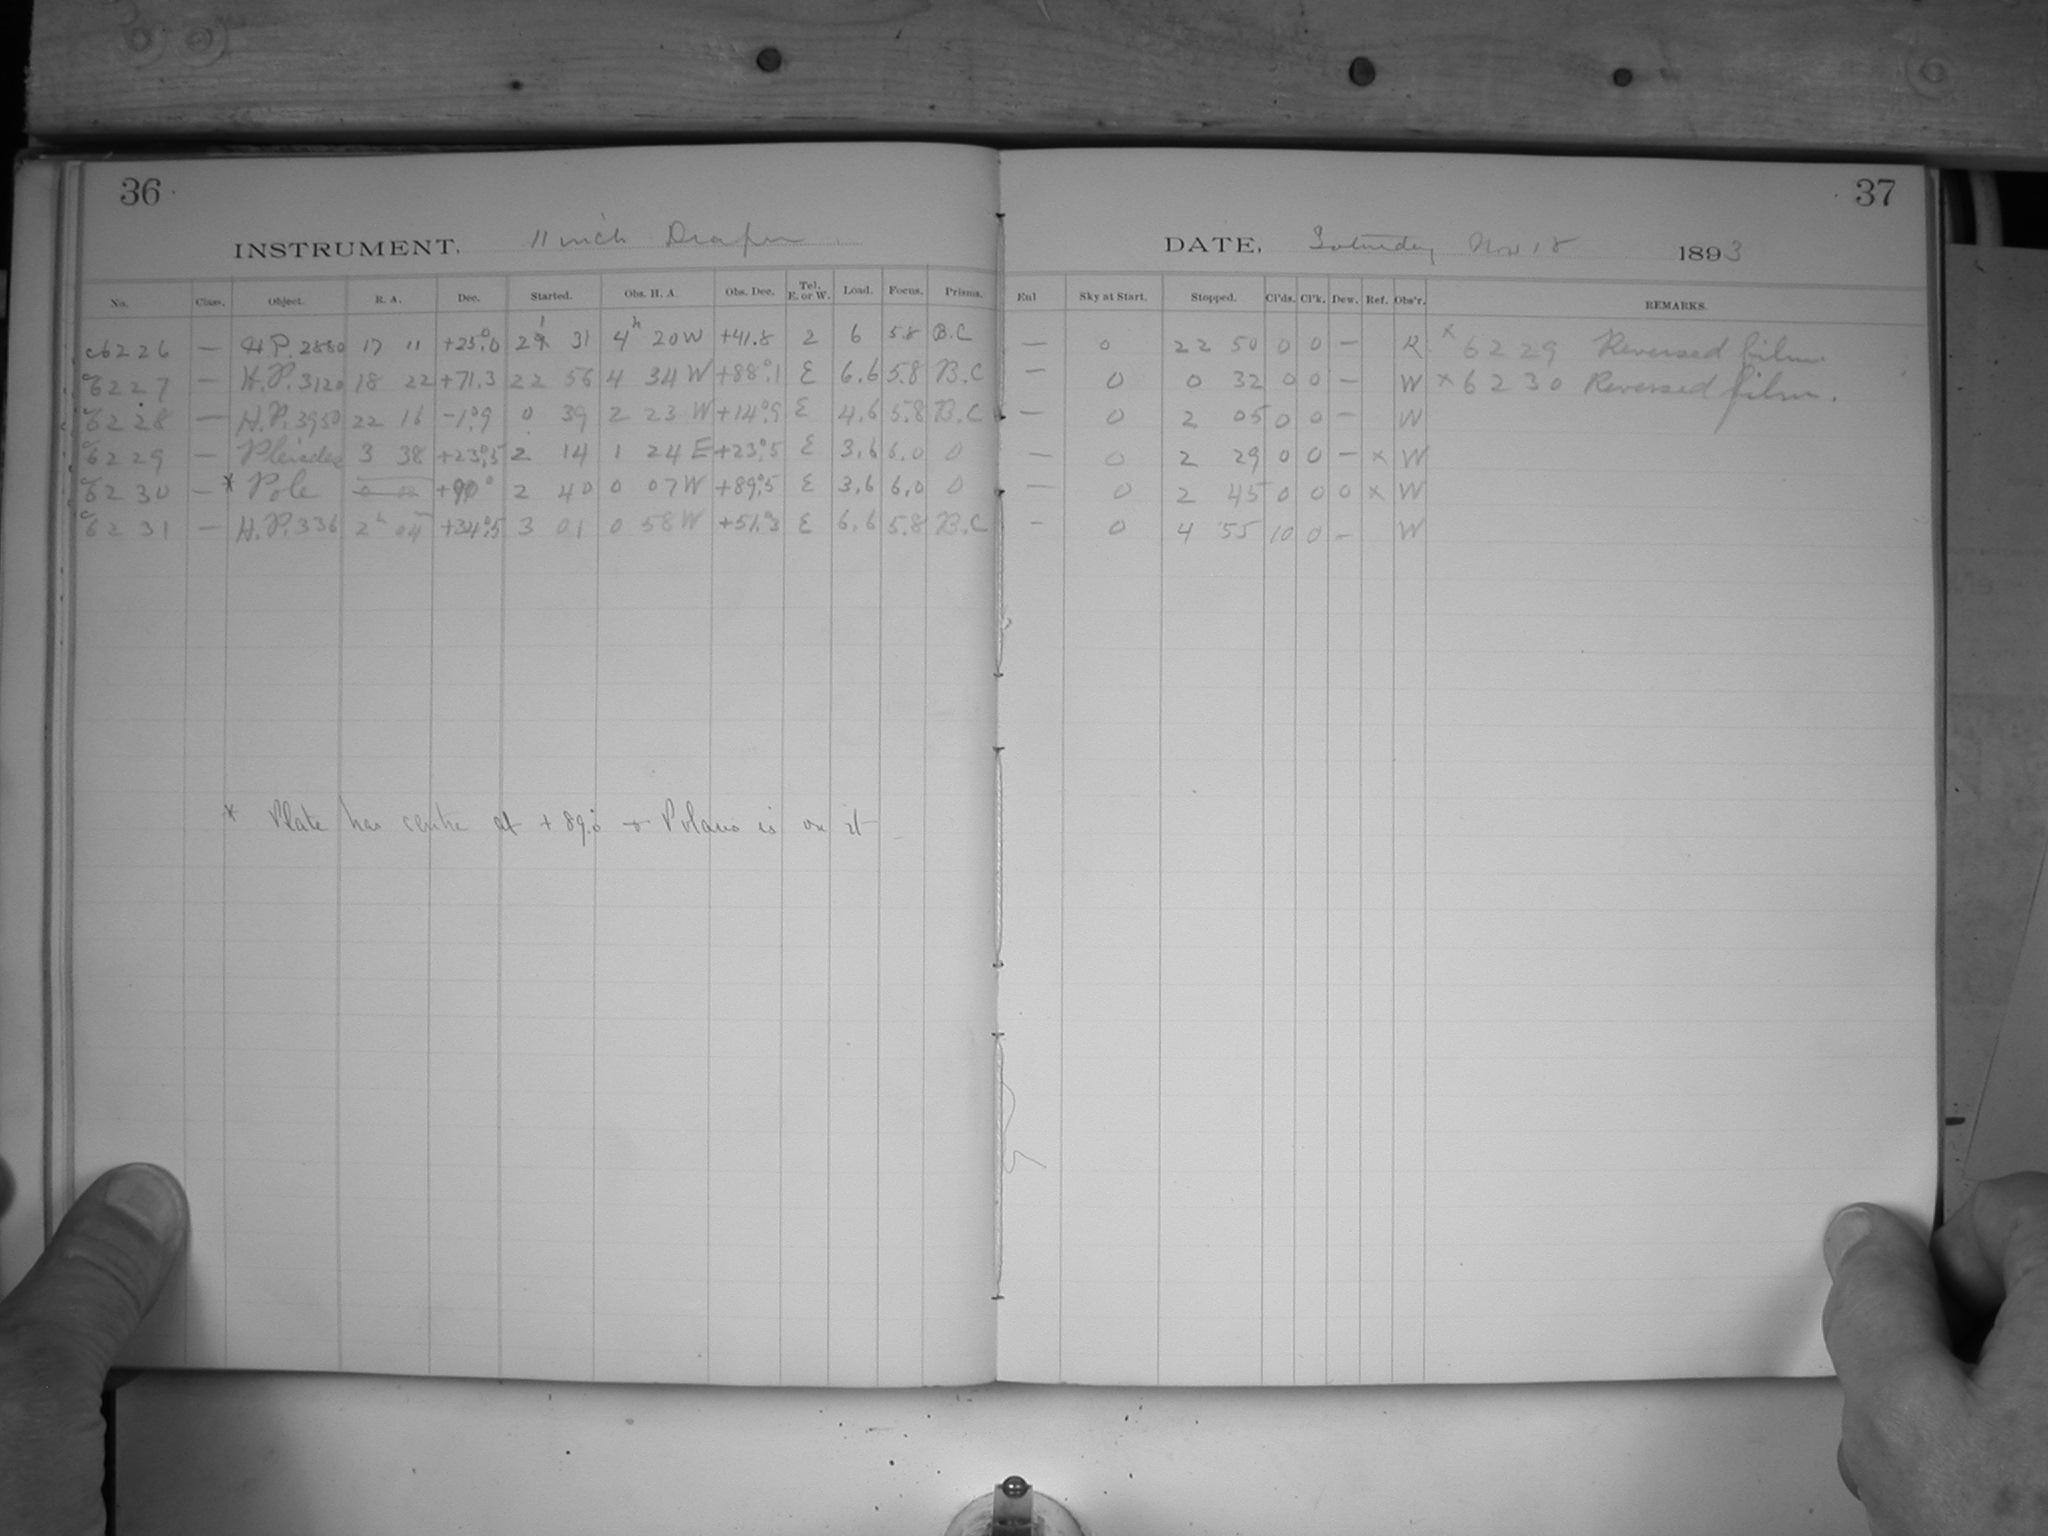 36
INSTRUMENT, 11 inch Draper
No. Class. Object. R. A. Dec. Started. Obs. H. A. Obs. Dec. Tel. E. or W. Load. Focus. Prisms.
c6226 — H.P. 2880 17 11 +25°.0 31 4h 20W +41.8 2 6 5.8 B.C
c6227 — H.P. 3120 18 22 +71.3 22 56 4 34 W +88°.1 E 6.6 5.8 B.C
c6228 — H.P. 3950 22 16 -1°.9 0 39 2 23 W +14°.9 E 4.6 5.8 B.C
c6229 — Pleiades 3 38 +23°.5 2 14 1 24 E +23°.5 E 3.6 6.0 0
c6230 — * Pole +90° 2 40 0 07W +89°.5 E 3.6 6.0 0
c6231 — H.P. 336 2h 04 +34°.5 3 01 0 58 W +51°.3 E 6.6 5.8 B.C
* Plate has centre at +89.° + Polaris is on it
37
DATE, Saturday Nov 18 1893
Ext Sky at Start. Stopped. Cl'ds. Cl'k. Dew. Ref. Obs'r. REMARKS.
— 0 22 50 0 0 — R x 6229 Reversed film
— 0 0 32 0 0 — W x 6230 Reversed film.
— 0 2 05 0 0 — W
— 0 2 29 0 0 — x W
— 0 2 45 0 0 0 x W
— 0 4 55 10 0 — W